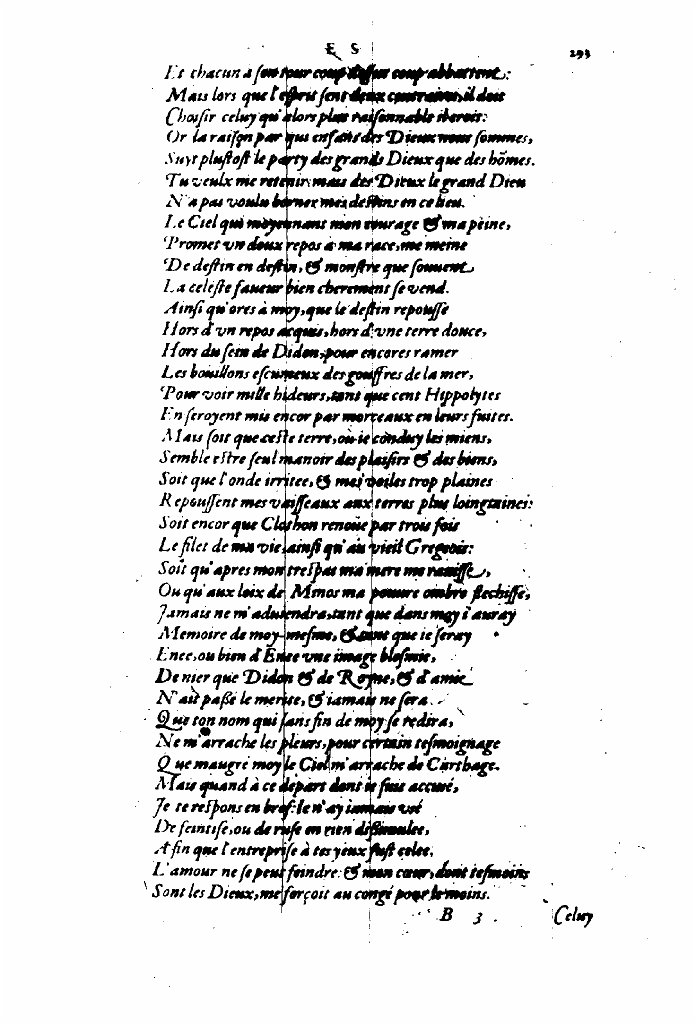 E S
293
Et chacun à son tour coup dessus coup abbattent:
Mais lors que l'esprit sent deux contraires, il doit
Choisir celuy qu'alors plus raisonnable il croit:
Or la raison par qui enfans des Dieux nous sommes,
Suyt plustost le party des grands Dieux que des hõmes.
Tu veulx me retenir: mais des Dieux le grand Dieu
N'a pas voulu borner mes destins en ce lieu.
Le Ciel qui moyennant mon courage & ma peine,
Promet vn doux repos à ma race, me meine
De destin en destin, & monstre que souuent
La celeste faueur bien cherement se vend.
Ainsi qu'ores à moy, que le destin repousse
Hors d'vn repos acquis, hors d'vne terre douce,
Hors du sein de Didon, pour encores ramer
Les bouillons escumeux des gouffres de la mer,
Pour voir mille hideurs, tant que cent Hippolytes
En seroyent mis encor par morceaux en leurs fuites.
Mais soit que ceste terre, où ie conduy les miens,
Semble estre seul manoir des plaisirs & des biens,
Soit que l'onde irritee, & mes voiles trop plaines
Repoussent mes vaisseaux aux terres plus loingtaines:
Soit encor que Clothon renoüe par trois fois
Le filet de ma vie, ainsi qu'au vieil Gregeois:
Soit qu'apres mon trespas ma mere me rauisse,
Ou qu'aux loix de Minos ma pauure ombre flechisse,
Jamais ne m'aduiendra, tant que dans moy i'auray
Memoire de moy-mesme, & tant que ie seray
Enee, ou bien d'Enee vne image blesmie,
De nier que Didon & de Royne, & d'amie
N'ait passé le merite, & iamais ne sera
Que ton nom qui sans fin de moy se redira,
Ne m'arrache les pleurs, pour certain tesmoignage
Que maugré moy le Ciel m'arrache de Carthage.
Mais quand à ce depart dont ie suis accusé,
Je te respons en bref: Ie n'ay iamais vsé
De feintise, ou de ruse en rien dissimulee,
Afin que l'entreprise à tes yeux fust celee.
L'amour ne se peut feindre: & mon cœur, dont tesmoins
Sont les Dieux, me forçoit au congé pour le moins.
B 3
Celuy